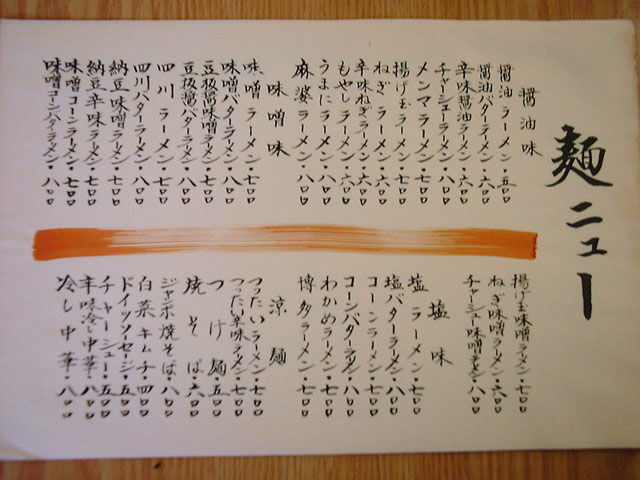 麺ニュー
醤油味
醤油ラーメン・五〇〇
醤油バターラーメン・六〇〇
辛味醤油ラーメン・六〇〇
チャーシューラーメン・八〇〇
メンマラーメン・七〇〇
揚げ玉ラーメン・七〇〇
ねぎラーメン・六〇〇
辛味ねぎラーメン・六〇〇
もやしラーメン・六〇〇
うまにラーメン・八〇〇
麻婆ラーメン・八〇〇
味噌味
味噌ラーメン・七〇〇
味噌バターラーメン・八〇〇
豆板醤味噌ラーメン・七〇〇
豆板醤バターラーメン・八〇〇
四川ラーメン・七〇〇
四川バターラーメン・八〇〇
納豆味噌ラーメン・七〇〇
納豆辛味ラーメン・七〇〇
味噌コーンラーメン・七〇〇
味噌コーンバターラーメン・八〇〇
揚げ玉味噌ラーメン・七〇〇
ねぎ味噌ラーメン・六〇〇
チャーシュー味噌ラーメン・八〇〇
塩味
塩ラーメン・七〇〇
塩バターラーメン・八〇〇
コーンラーメン・七〇〇
コーンバターラーメン・八〇〇
わかめラーメン・七〇〇
博多ラーメン・七〇〇
涼麺
つったいラーメン・七〇〇
つったい辛味ラーメン・七〇〇
つけ麺・五〇〇
焼そば・六〇〇
ジャンボ焼そば・八〇〇
白菜キムチ・四〇〇
ドイツソーセージ・五〇〇
チャーシュー・五〇〇
辛味冷し中華・八〇〇
冷し中華・八〇〇